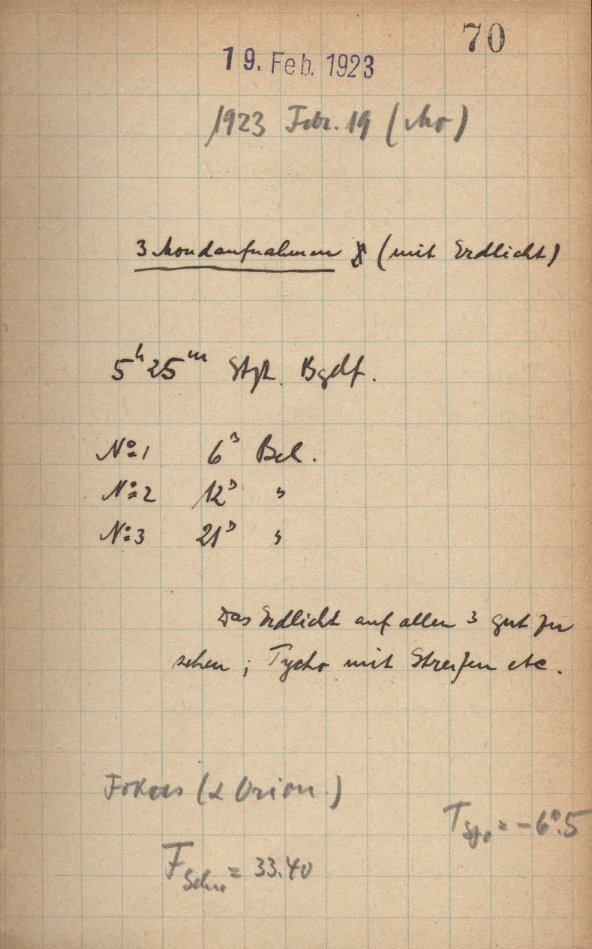 70
19. Feb. 1923
1923 Febr. 19 (Mo)
3 Mondaufnahmen (mit Erdlicht)
5h 25m Stzt. Bgdf.
No 1 6s Bel.
No 2 12s "
No 3 21s "
Das Erdlicht auf allen 3 gut zu
sehen; Tycho mit Streifen etc.
Fokus (α Orion.)
T = -6°.5
F = 33.40